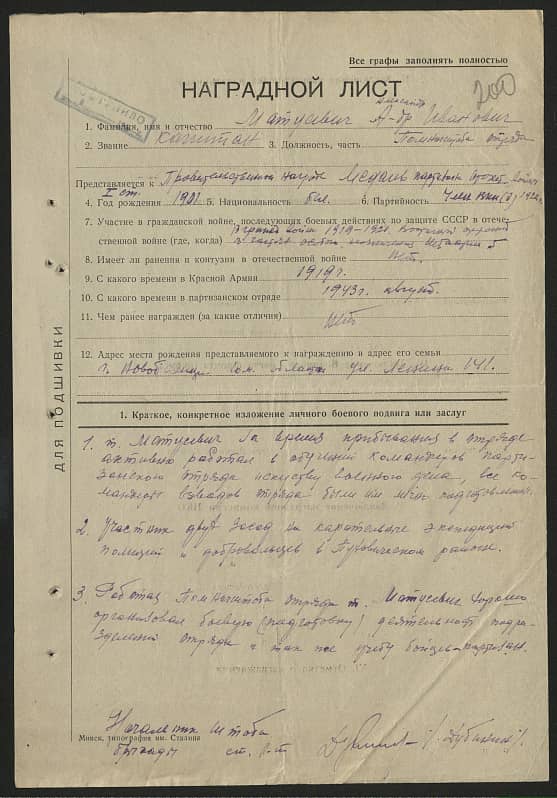 Все графы заполнять полностью
200
НАГРАДНОЙ ЛИСТ
1. Фамилия, имя и отчество Матусевич А-др Иванович
Александр
2. Звание Капитан 3. Должность, часть Помнштаба отряда
Представляется к Правительственной награде Медаль партизан Отечест. войны
I ст.
4. Год рождения 1901 5. Национальность бел. 6. Партийность Член ВКП(б)
7. Участие в гражданской войне, последующих боевых действиях по защите СССР в отечест-
венной войне (где, когда) В гражд. войне 1919-1920.
8. Имеет ли ранения и контузии в отечественной войне Нет.
9. С какого времени в Красной Армии 1919 г.
10. С какого времени в партизанском отряде 1943 г. август.
11. Чем ранее награжден (за какие отличия) Нет
12. Адрес места рождения представляемого к награждению и адрес его семьи
г. Гом. области ул. 141.
ДЛЯ ПОДШИВКИ
1. Краткое, конкретное изложение личного боевого подвига или заслуг
1. т. Матусевич за время прибывания в отряде
активно работал в обучении командиров парти-
занского отряда искуству военного дела, все ко-
мандиры взводов отряда были им подготовлены.
2. Участник двух засад на карательные экспедиции
полиции и добровольцев в Пуховичском районе.
3. Работая Помнштаба отряда т. Матусевич хорошо
организовал боевую (подготовку) деятельность подра-
зделений отряда а так же учебу бойцов-партизан.
Начальник штаба
Минск, типография им. Сталина
бригады ст. л-т /Дубинин/.